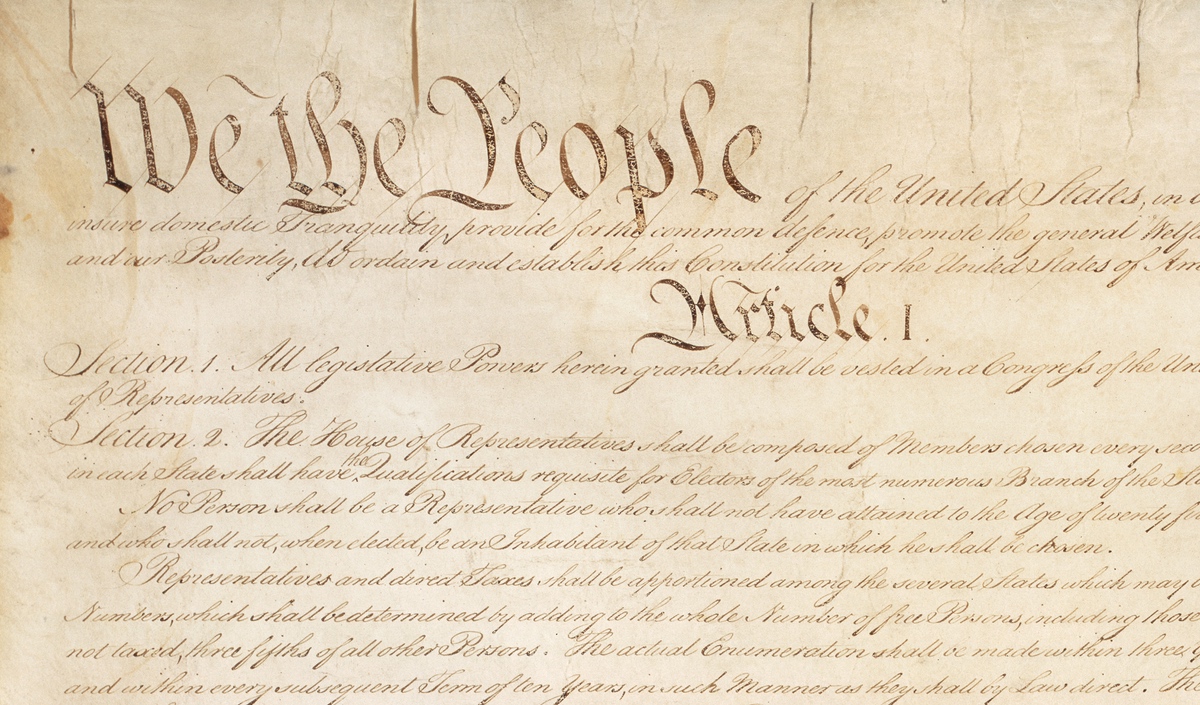 We the People of the United States, in
insure domestic Tranquility, provide for the common defence, promote the general
and our Posterity, do ordain and establish this Constitution for the United States of
Article. I.
Section. 1. All legislative Powers herein granted shall be vested in a Congress of the
of Representatives.
Section. 2. The House of Representatives shall be composed of Members chosen every
in each State shall have the Qualifications requisite for Electors of the most numerous Branch of the
No Person shall be a Representative who shall not have attained to the Age of twenty
and who shall not, when elected, be an Inhabitant of that State in which he shall be chosen.
Representatives and direct Taxes shall be apportioned among the several States which may
Numbers, which shall be determined by adding to the whole Number of free Persons, including those
not taxed, three fifths of all other Persons. The actual Enumeration shall be made within three
and within every subsequent Term of ten Years, in such Manner as they shall by Law direct. The